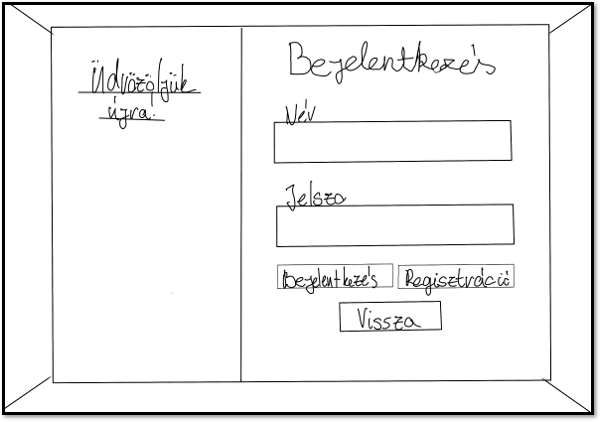 Üdvözöljük
újra!
Bejelentkezés
Név
Jelsza
Bejelentkezés
Regisztráció
Vissza